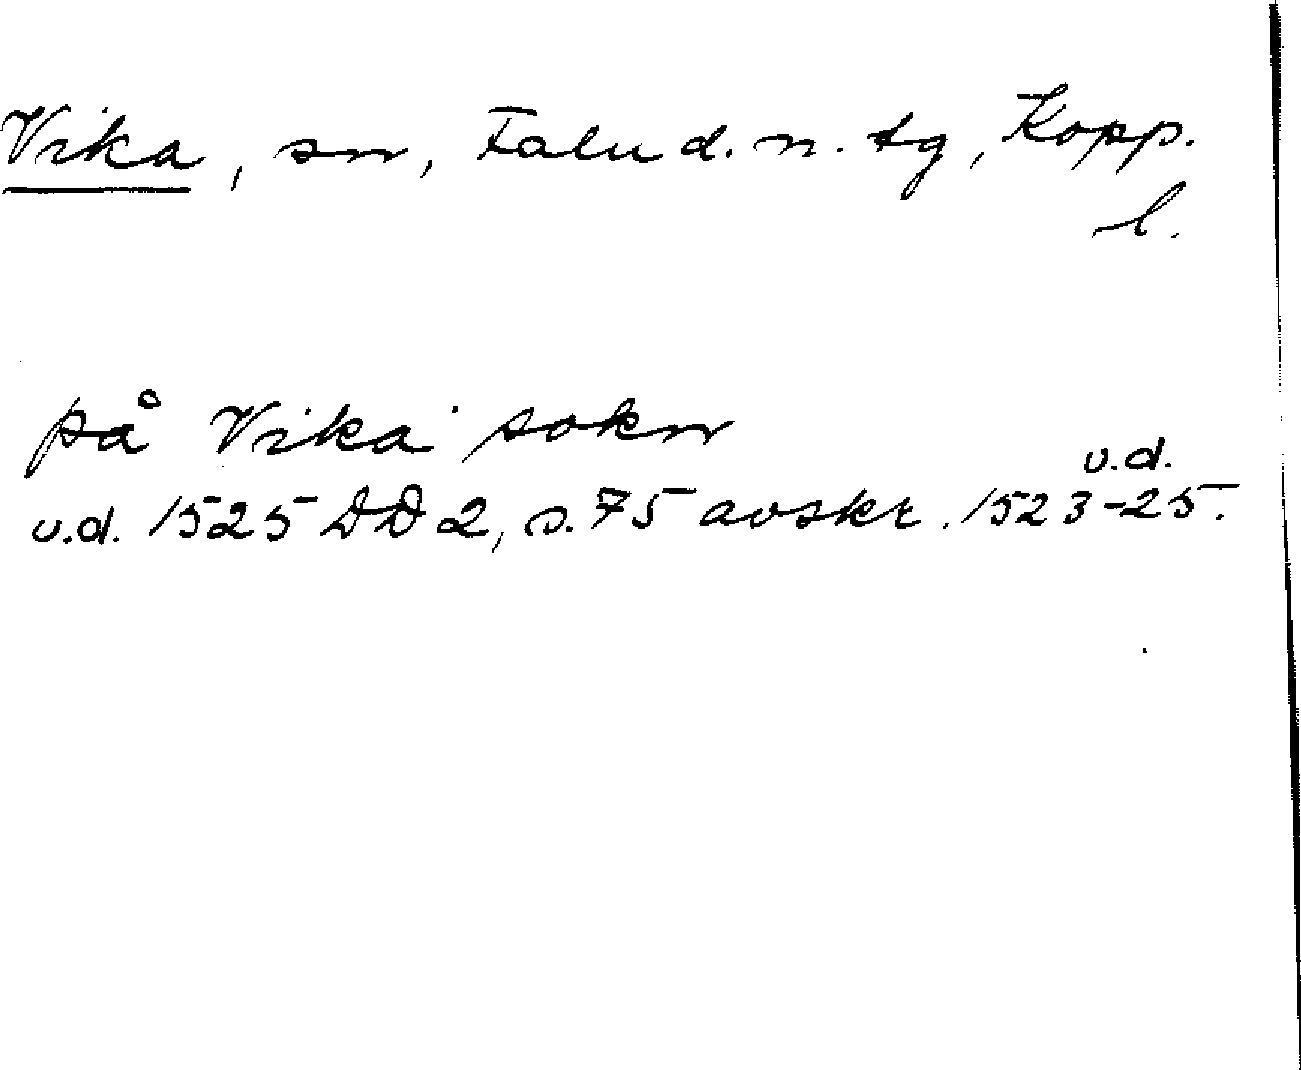 Vika, sn, Falu d. n. tg, Kopp.
l.
på Vika sokn
u.d. 1525 DD 2, s. 75 avskr. 1523-25.
u.d.